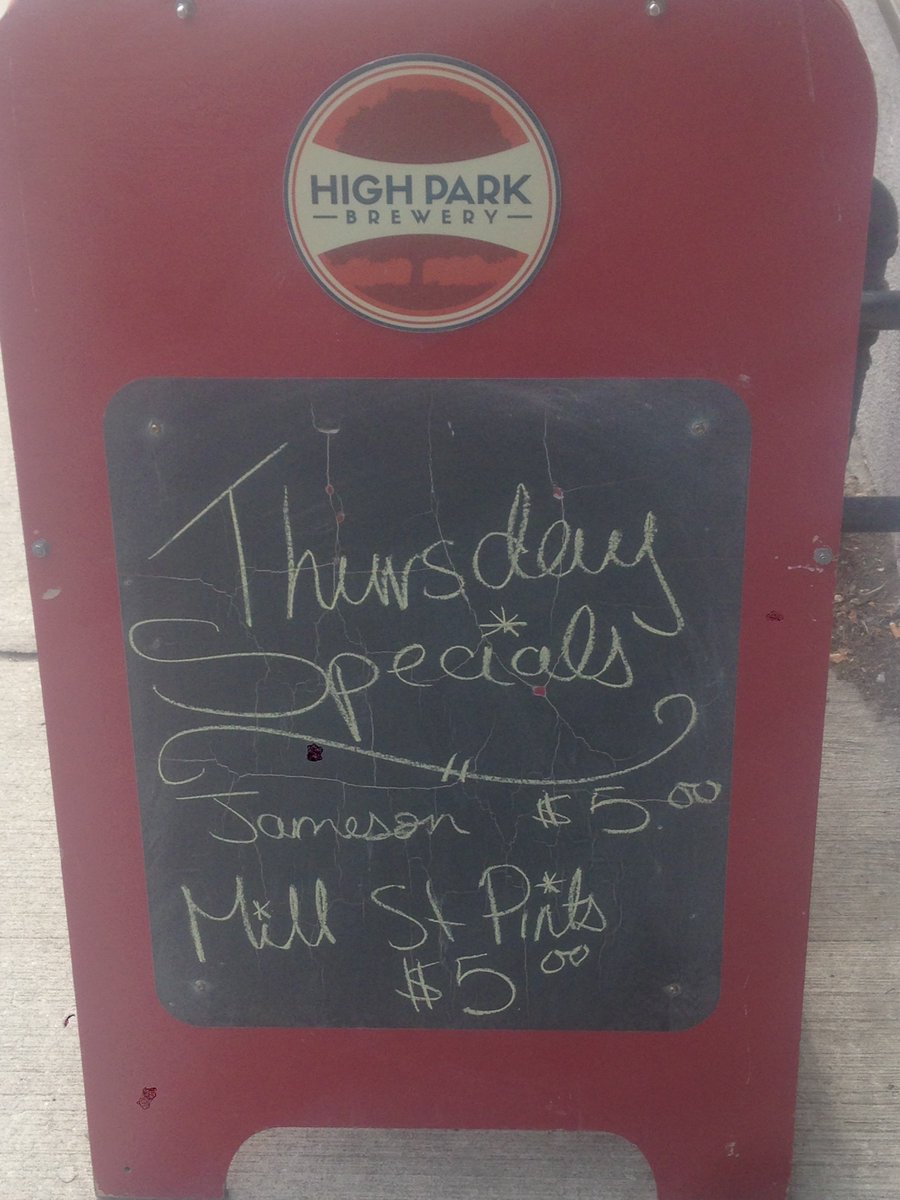 HIGH PARK
BREWERY
Thursday
Specials
Jameson $5.00
Mill St Pints
$5.00